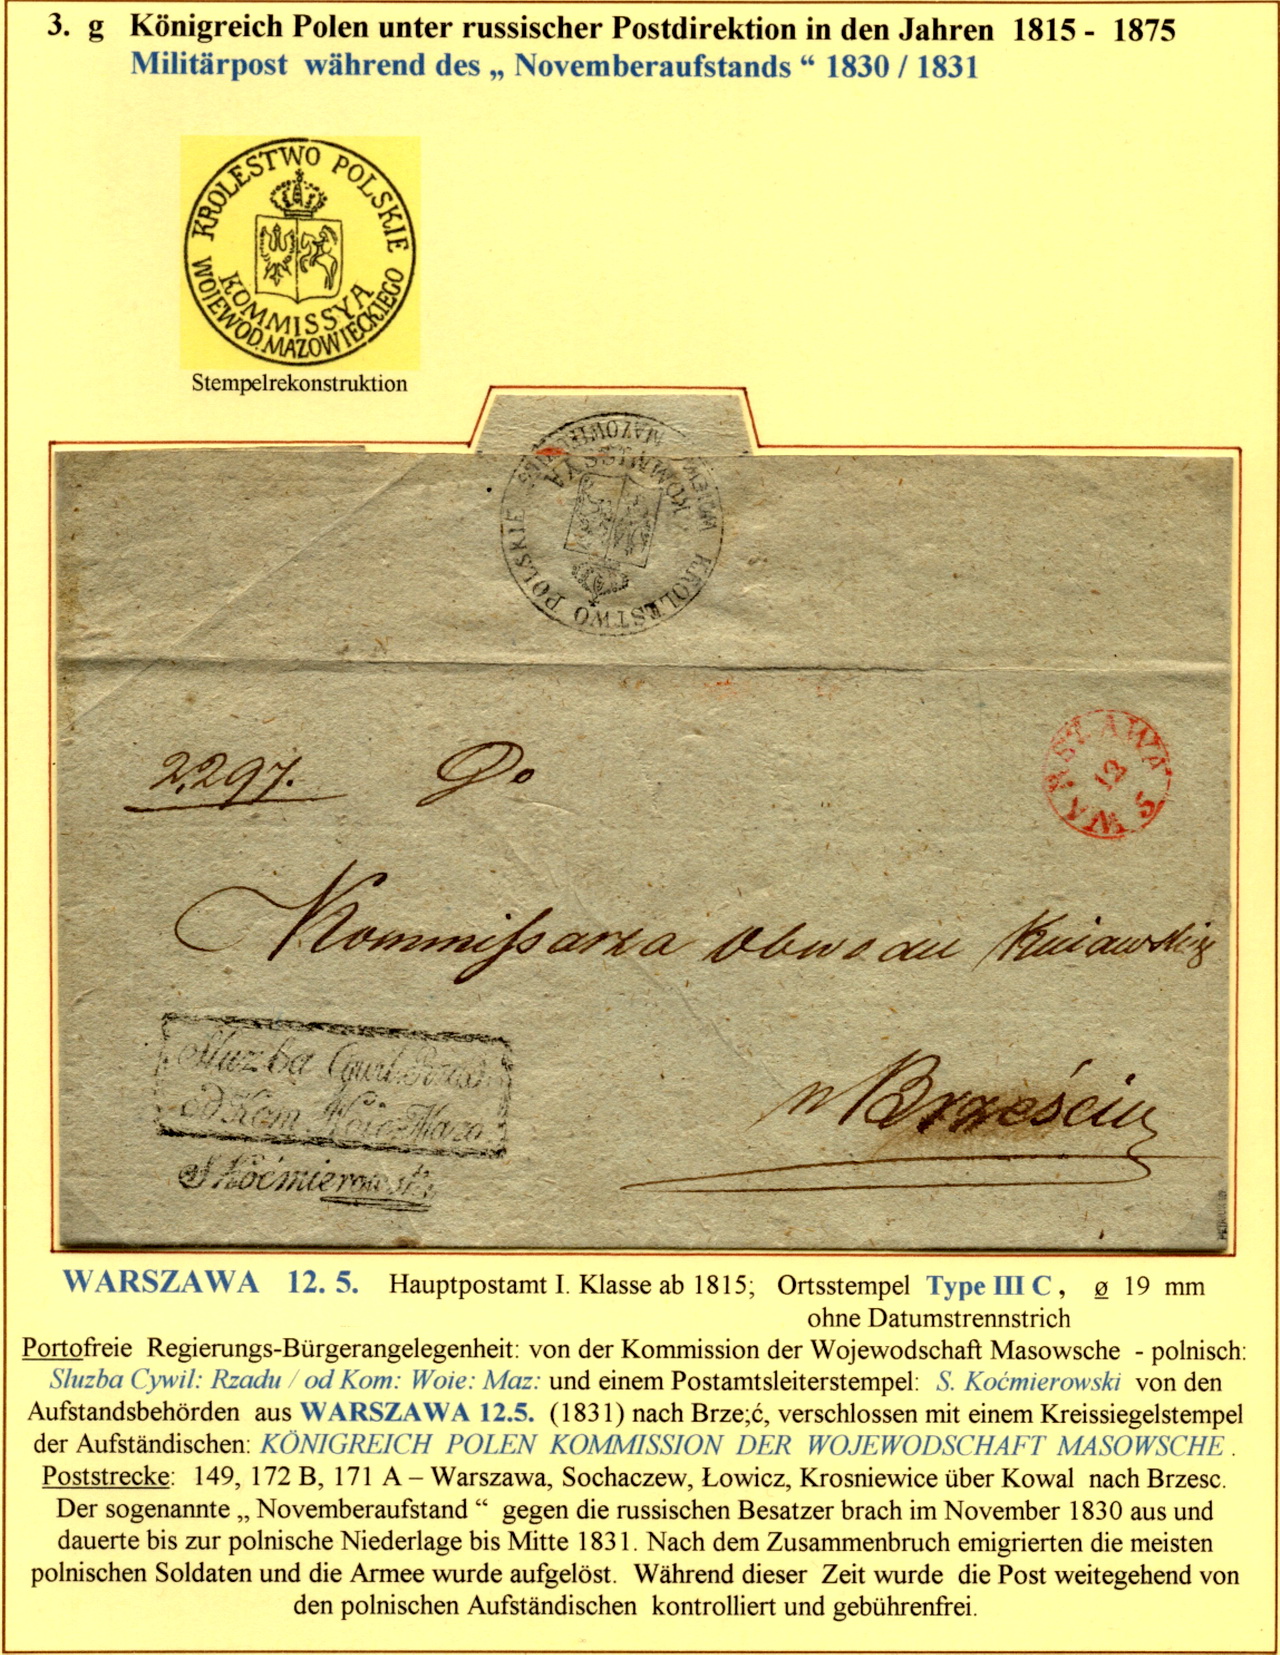 3. g Königreich Polen unter russischer Postdirektion in den Jahren 1815 - 1875
Militärpost während des „ Novemberaufstands “ 1830 / 1831
KROLESTWO POLSKIE
KOMMISSYA
WOIEWOD. MAZOWIECKIEGO
Stempelrekonstruktion
KROLESTWO POLSKIE
KOMMISSYA
2,297. Do
WARSZAWA
12
Kommissarza Obwodu Kuiawskieg
w Brześciu
Sluzba Cywil: Rzad
od Kom: Woie: Mazo
S Koćmierowski
WARSZAWA 12. 5. Hauptpostamt I. Klasse ab 1815; Ortsstempel Type III C , ø 19 mm
ohne Datumstrennstrich
Portofreie Regierungs-Bürgerangelegenheit: von der Kommission der Wojewodschaft Masowsche - polnisch:
Sluzba Cywil: Rzadu / od Kom: Woie: Maz: und einem Postamtsleiterstempel: S. Koćmierowski von den
Aufstandsbehörden aus WARSZAWA 12.5. (1831) nach Brze;ć, verschlossen mit einem Kreissiegelstempel
der Aufständischen: KÖNIGREICH POLEN KOMMISSION DER WOJEWODSCHAFT MASOWSCHE .
Poststrecke: 149, 172 B, 171 A – Warszawa, Sochaczew, Łowicz, Krosniewice über Kowal nach Brzesc.
Der sogenannte „ Novemberaufstand “ gegen die russischen Besatzer brach im November 1830 aus und
dauerte bis zur polnische Niederlage bis Mitte 1831. Nach dem Zusammenbruch emigrierten die meisten
polnischen Soldaten und die Armee wurde aufgelöst. Während dieser Zeit wurde die Post weitegehend von
den polnischen Aufständischen kontrolliert und gebührenfrei.